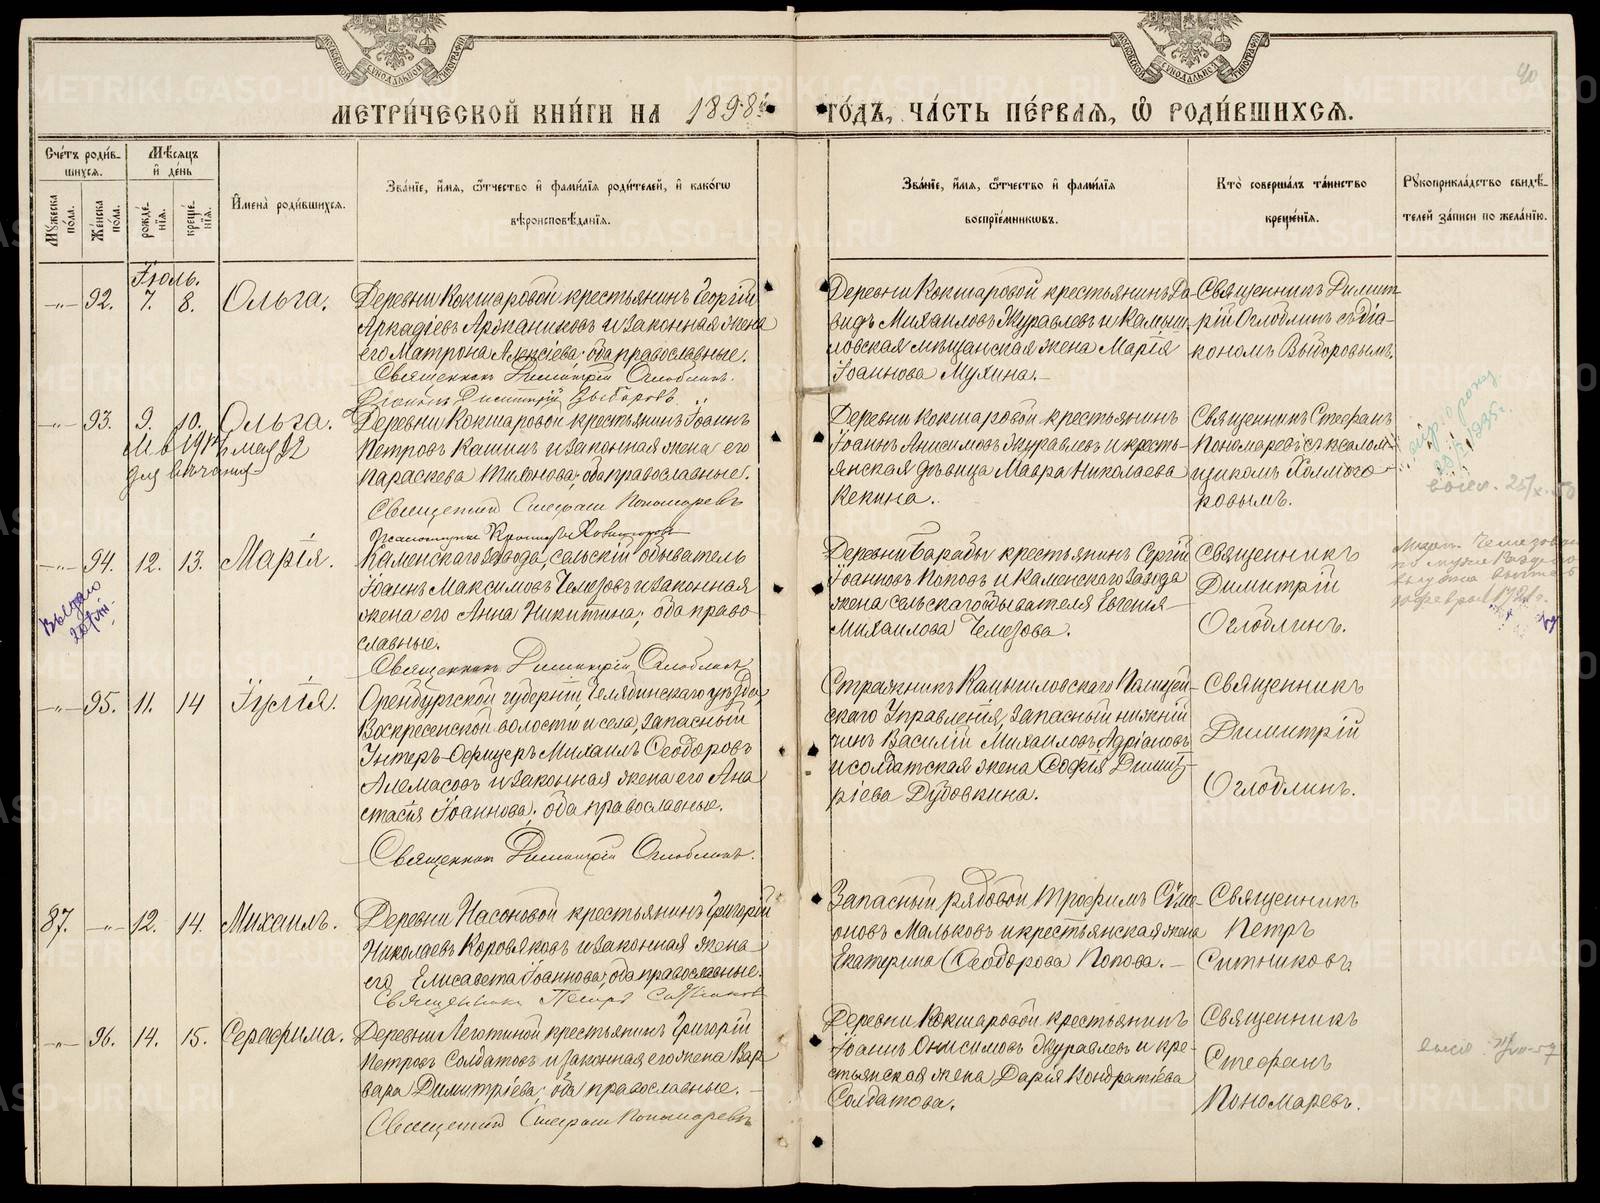 МОСКОВСКОЙ СѴНОДАЛЬНОЙ ТИПОГРАФІИ
МОСКОВСКОЙ СѴНОДАЛЬНОЙ ТИПОГРАФІИ
40
МЕТРИ́ЧЕСКОЙ КНИ́ГИ НА 1898й
ГО́ДЪ, ЧА́СТЬ ПЕ́РВАЯ, Ѽ РОДИ́ВШИХСЯ.
Сче́тъ роди́в-
шихся.
Му́жеска по́ла.
Же́нска по́ла.
Мѣ́сяцъ и҆ де́нь
рожде́-
нїя.
креще́-
нїя.
И҆мена̀ роди́вшихся.
Зва́нїе, и҆́мя, ѻ҆́тчество и҆ фами́лїя роди́телей, и҆ како́гѡ
вѣроисповѣ́данїя.
Зва́нїе, и҆́мя, ѻ҆́тчество и҆ фами́лїя
воспрїе́мниковъ.
Кто̀ соверша́лъ та́инство
креще́нїя.
Рꙋкоприкла́дство свидѣ́-
телей за́писи по жела́нїю.
Іюль.
-"- 92. 7. 8. Ольга.
Деревни Кокшаровой крестьянинъ Георгій
Аркадіевъ и законная жена
его Матрона Алексіева; оба православные.
Священникъ Димитрій Оглоблинъ.
Діаконъ Димитрій Выборовъ
Деревни Кокшаровой крестьянинъ Да-
видъ Михаиловъ Журавлевъ и Камыш-
ловская мѣщанская жена Марія
Іоаннова Мухина.
Священникъ Димит-
рій Оглоблинъ съ діа-
кономъ Выборовымъ.
-"- 93. 9. 10. Ольга.
для вѣнчания
Деревни Кокшаровой крестьянинъ Іоаннъ
Петровъ Кашинъ и законная жена его
Параскева Тихонова; оба православные.
Священникъ Стефанъ Пономаревъ
Деревни Кокшаровой крестьянинъ
Іоаннъ Анисимовъ Журавлевъ и кресть-
янская дѣвица Мавра Николаева
Кекина.
Священникъ Стефанъ
Пономаревъ съ псалом-
щикомъ Холмого-
ровымъ.
1935г.
-"- 94. 12. 13. Марія.
Каменскаго завода, сельскій обыватель
Іоаннъ Максимовъ Чемезовъ и законная
жена его Анна Никитина; оба право-
славные.
Священникъ Димитрій Оглоблинъ
Деревни Барабы крестьянинъ Сергій
Іоанновъ Поповъ и Каменскаго завода
жена сельскаго обывателя Евгенія
Михаилова Чемезова.
Священникъ
Димитрій
Оглоблинъ.
-"- 95. 11. 14 Іулія.
Оренбургской губерніи, Челябинскаго уѣзда,
Воскресенской волости и села, запасный
Унтеръ-Офицеръ Михаилъ Ѳеодоровъ
Алемасовъ и законная жена его Ана
стасія Іоаннова; оба православные.
Священникъ Димитрій Оглоблинъ.
Стражникъ Камышловскаго Полицей-
скаго Управленія, запасный нижній
чинъ Василій Михаиловъ Адріановъ
и солдатская жена Софія Димит-
ріева Дубовкина.
Священникъ
Димитрій
Оглоблинъ.
87. -"- 12. 14. Михаилъ.
Деревни Насоновой крестьянинъ Григорій
Николаевъ Коровяковъ и законная жена
его Елисавета Іоаннова; оба православные.
Священникъ Петръ Ситниковъ
Запасный рядовой Трофимъ Симе-
оновъ Мальковъ и крестьянская жена
Екатерина Ѳеодорова Попова.
Священникъ
Петръ
Ситниковъ.
-"- 96. 14. 15. Серафима.
Деревни Леготиной крестьянинъ Григорій
Петровъ Солдатовъ и законная его жена Вар
вара Димитріева; оба православные.
Священникъ Стефанъ Пономаревъ
Деревни Кокшаровой крестьянинъ
Іоаннъ Онисимовъ Журавлевъ и кре-
стьянская жена Дарія Кондратіева
Солдатова.
Священникъ
Стефанъ
Пономаревъ.
METRIKI.GASO-URAL.RU